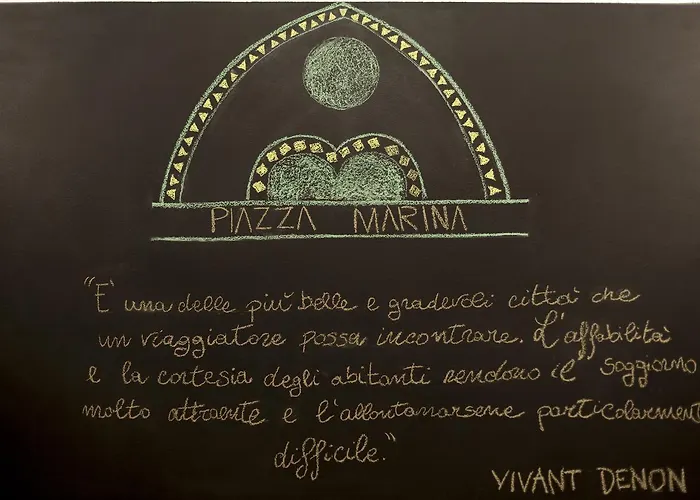 PIAZZA MARINA
"E' una delle più belle e gradevoli città che
un viaggiatore possa incontrare. L'affabilità
e la cortesia degli abitanti rendono il soggiorno
molto attraente e l'allontanarsene particolarment
difficile."
VIVANT DENON